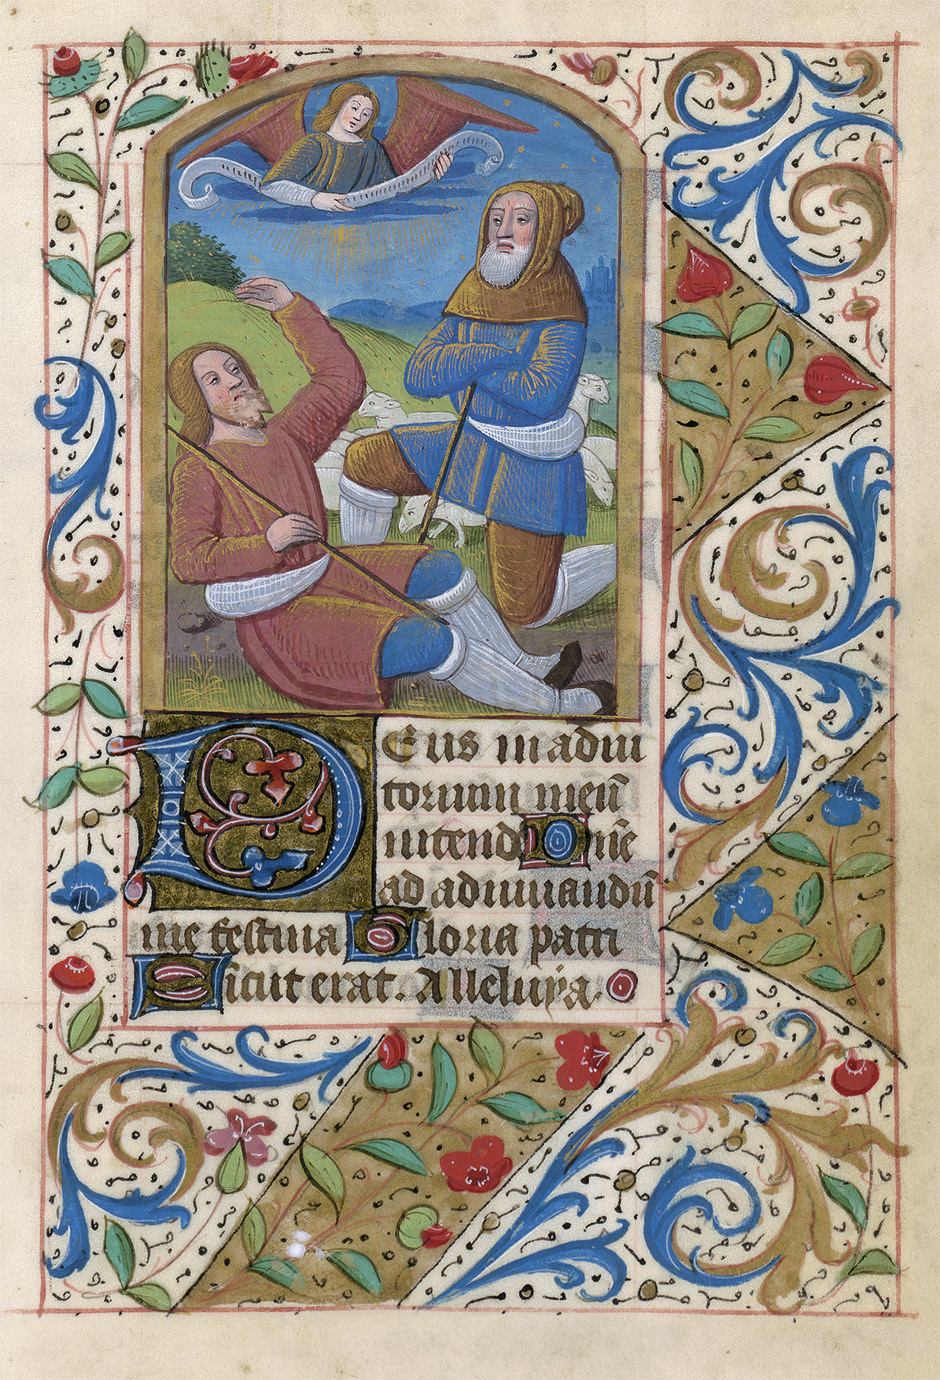 Deus in adiu
torium meū
intende One
ad adiuuandū
me festina Gloria patri
Sicut erat. Alleluya.